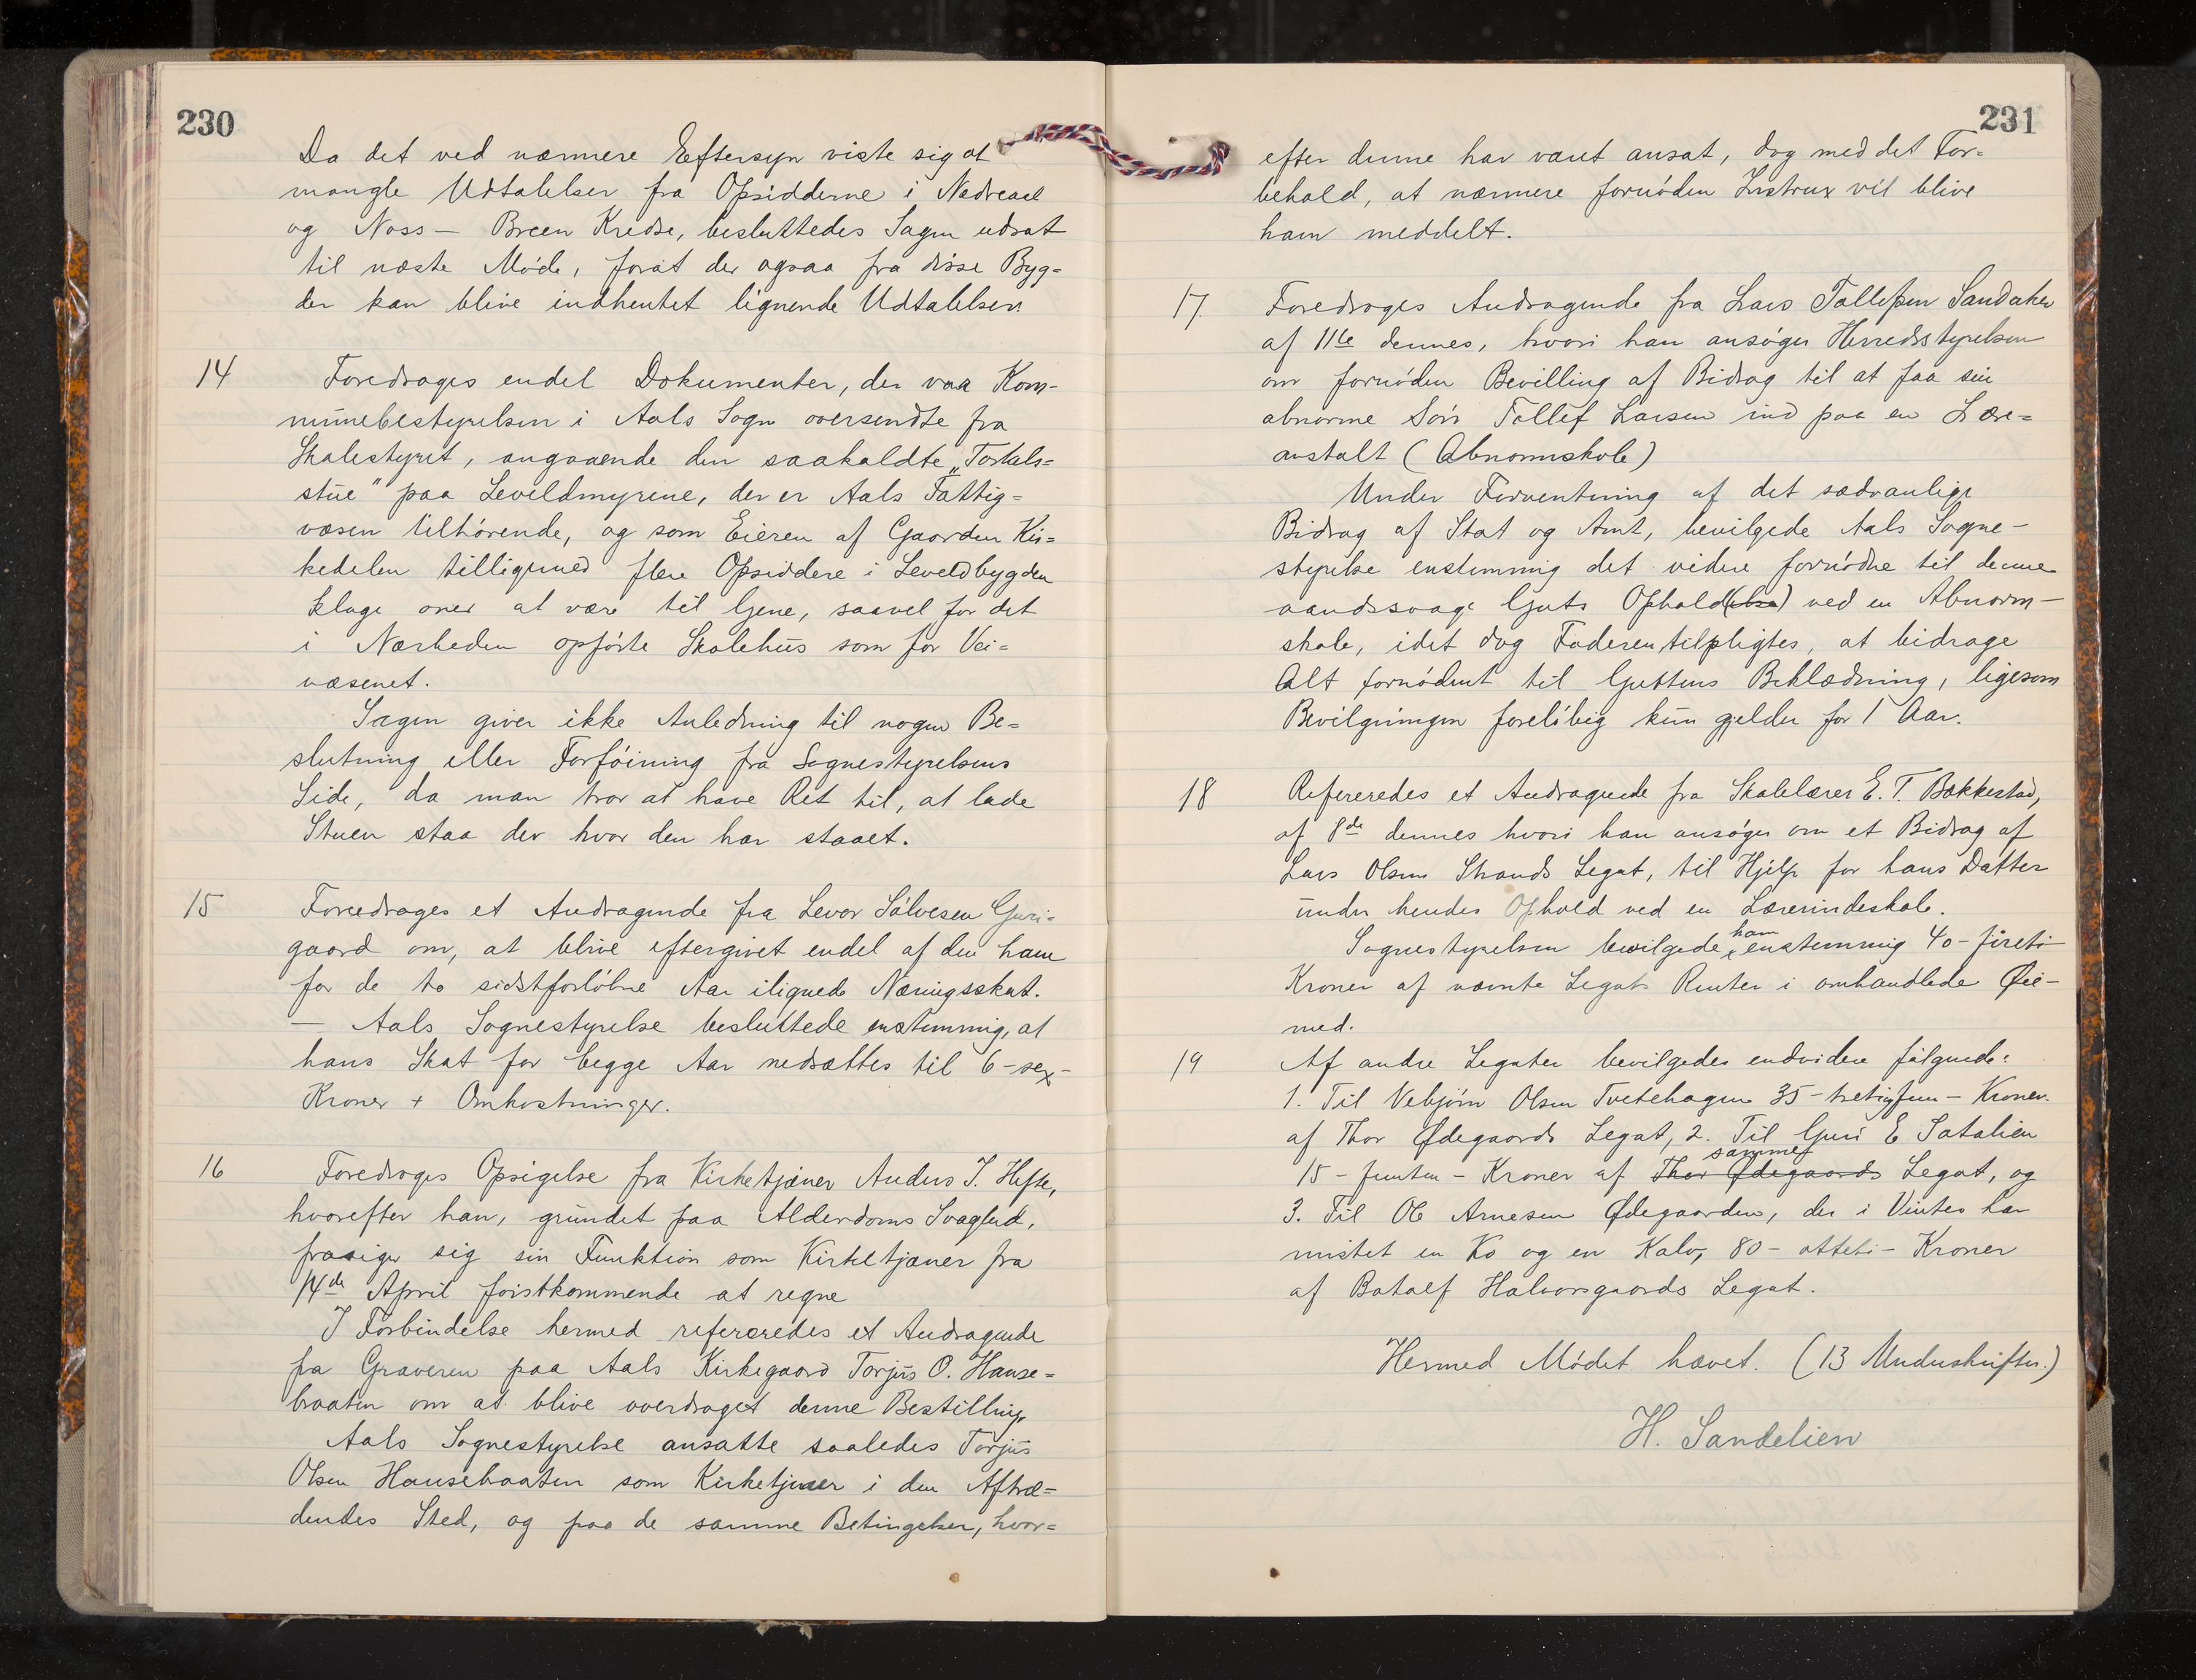 230
Da det ved nærmere Eftersyn viste sig at
mangle Udtalelser fra Opsidderne i Nedreaal
og Noss – Breen Kredse, besluttedes Sagen udsat
til næste Møde, forat der ogsaa fra disse Byg=
der kan blive indhentet lignende Udtalelser.
14 Foredroges endel Dokumenter, der vaa Kom-
munebestyrelsen i Aals Sogn oversendte fra
Skolestyret, angaaende den saakaldte „Torkels=
stue" paa Leveldmyrene, der er Aals Fattig=
væsen tilhørende, og som Eieren af Gaarden Kir=
kedelen tilligemed flere Opsiddere i Leveldbygden
klage over at være til Gene, saavel for det
i Nærheden opførte Skolehus som for Vei=
væsenet.
Sagen giver ikke Anledning til nogen Be=
slutning eller Forføining fra Sognestyrelsens
Side, da man tror at have Ret til, at lade
Stuen staa der hvor den har staaet.
15 Foredroges et Andragende fra Levor Sølvesen Guri=
gaard om, at blive eftergivet endel af den ham
for de to sidstforløbne Aar ilignede Næringsskat.
— Aals Sognestyrelse besluttede enstemmig, at
hans Skat for begge Aar nedsættes til 6 – sex –
Kroner + Omkostninger.
16 Foredroges Opsigelse fra Kirketjener Anders T. Hefte,
hvorefter han, grundet paa Alderdoms Svaghed,
frasiger sig sin Funktion som Kirketjener fra
14de April førstkommende at regne
I Forbindelse hermed refereredes et Andragende
fra Graveren paa Aals Kirkegaard Torjus O. Hanse=
braaten om at blive overdraget denne Bestilling
Aals Sognestyrelse ansatte saaledes Torjus
Olsen Hansebraaten som Kirketjener i den Aftræ=
dendes Sted, og paa de samme Betingelser, hvor=
231
efter denne har været ansat, dog med det For=
behold, at nærmere fornøden Instrux vil blive
ham meddelt.
17 Foredroges Andragende fra Lars Tollefsen Sandaker
af 11te dennes, hvori han ansøger Herredsstyrelsen
om fornøden Bevilling af Bidrag til at faa sin
abnorme Søn Tollef Larsen ind paa en Lære=
anstalt (Abnormskole)
Under Forventning af det sædvanlige
Bidrag af Stat og Amt, bevilgede Aals Sogne-
styrelse enstemmig det videre fornødne til denne
aandssvage Guts Ophold(else) ved en Abnorm-
skole, idet dog Faderen tilpligtes, at bidrage
Alt fornødent til Guttens Beklædning, ligesom
Bevilgningen foreløbig kun gjelder for 1 Aar.
18 Refereredes et Andragende fra Skolelærer E. T. Bækkestad,
af 8de dennes hvori han ansøger om et Bidrag af
Lars Olsen Strands Legat, til Hjelp for hans Datter
under hendes Ophold ved en Lærerindeskole.
Sognestyrelsen bevilgede ham enstemmig 40 – fireti
Kroner af nævnte Legats Renter i omhandlede Øie-
med.
19 Af andre Legater bevilgedes endvidere følgende:
1. Til Vebjørn Olsen Tvetehagen 35 – tretigfem – Kroner
af Thor Ødegaards Legat, 2. Til Guri E Satalien
15 – femten – Kroner af Thor Ødegaards samme Legat, og
3. Til Ole Arnesen Ødegaarden, der i Vinter har
mistet en Ko og en Kalv, 80 – otteti – Kroner
af Botolf Halvorsgaards Legat.
Hermed Mødet hævet. (13 Underskrifter.)
H. Sandelien